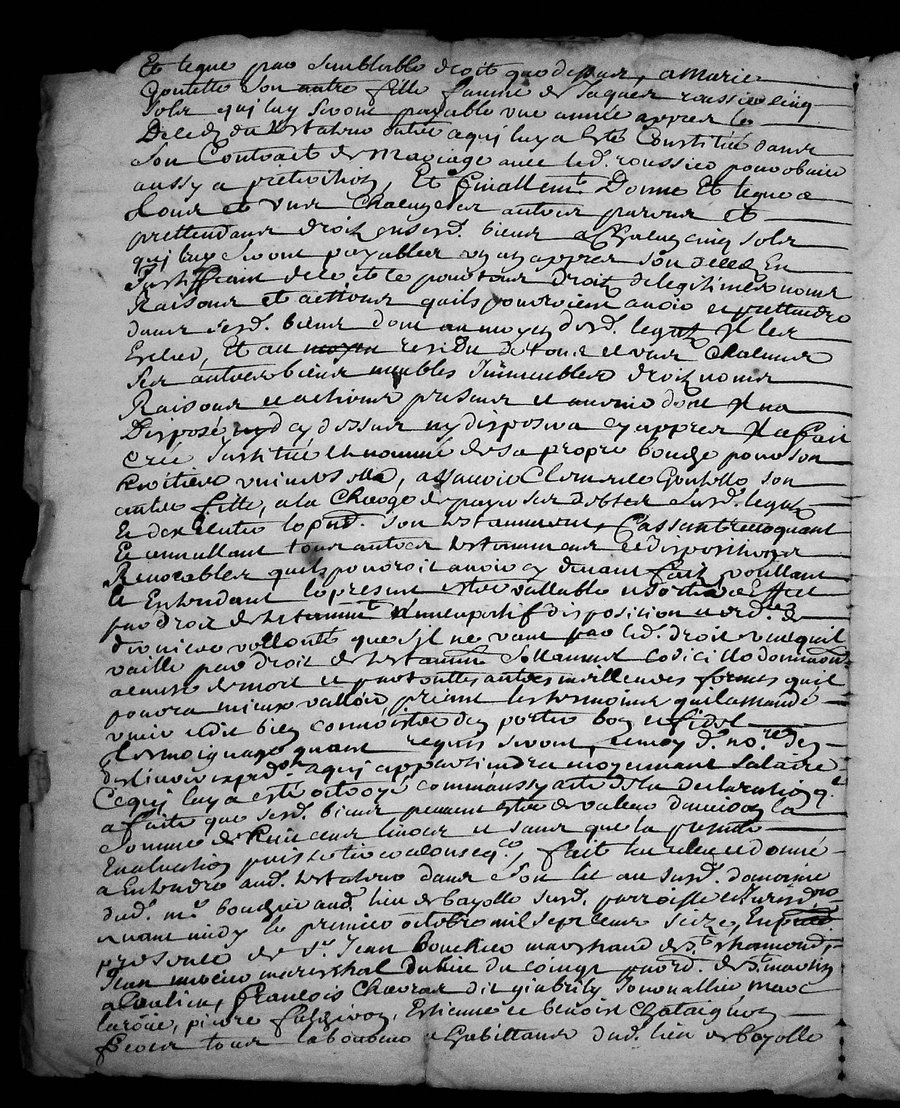 Et legue par semblable droit que dessus, a Marie
Goutelle son autre fille femme de Jaques roussier cinq
solz qui luy seront payable une année appres le
Deceds du testateur outre a quy luy a esté Constitué dans
son Contrait de Mariage avec led. roussier pour obvier
aussy a preterition, Et finallemt. Donne Et legue a
tous et uns Chacungs ses autres parens et
prettendans droit en sesd. biens a Chacun cinq solz
qui luy seront payables un an appres son deceds En
Instituant de ce et ce pour tous droits de legitime noms
Raisons et actions quils pourroient avoir et prettendre
dans sesd. biens dont au moyen desd. legatz Il les
Exclud, Et au residu de tous et uns Chacuns
ses autres biens meubles Immeubles droits noms
Raisons et actions presens et avenir dont Il na
Disposé cy dessus ny disposera cy appres Il a fait
creé Institué et nommé de sa propre bouche pour son
heritiere universelle, assavoir Goutelle son
autre fille, a la Charge de payer ses debtes sesd. legatz
Et dexecuter le pnt. son testament, Cassant revoquant
Et annullant tous autres testamens et dispositions
Revocables quil pourroit avoir cy devant fait, voullant
et Entendant le present estre vallable et sortir a Effect
par droit de testamt. nuncupatif disposition et ord. de
derniere vollonté que s'Il ne vaut par led. droit veut quil
vaille par droit de testament sollamnel Codicille donnaon
a cause de mort et par touttes autres meilleures formes quil
pourra mieux valloir, priant les tesmoins quil a mandé
venir et dit bien connoistre den porter bon et fidel
tesmoignage quant requis seront, et moy d. nore. den
expedon. a quy appartiendra moyennant salaire
Ce quy luy a esté octroyé comm'aussy acte de la declaration q.
a faite que sesd. biens peuvent estre de valeur denviron la
somme de huit cens livres et sans que la presente
Evaluation puisse tirer a conseqce, fait leu releu et donné
a Entendre aud. testateur dans son lit au susd. domaine
dud. mr. bouchier aud. lieu de bayolle susd. parroisse et
avant midy le premier octobre mil sept cens seize, En
presence de Sr. Jean bouchier marchand de St. chamond,
Jean mercier mareschal du lieu du coingt parr. de St. martin
a Coalieu, francois Chavas dit Journallier marc
laroüe, pierre, Estienne et benoist Chataignon
freres tous laboureurs habittans dud. lieu de bayolle